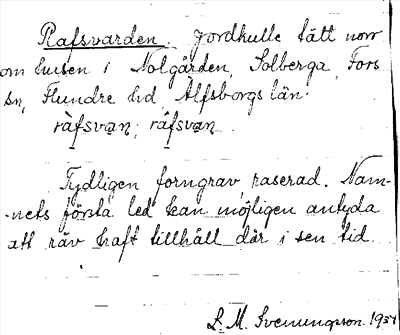 Rafsvarden. Jordkulle tätt norr
om husen i Nolgården, Solberga, Fors
sn, Flundre hd, Älfsborgs län.
ràfsvan, ráfsvan
Tydligen forngrav, raserad. Nam-
-nets första led kan möjligen antyda
att räv haft tillhåll där i sen tid.
L. M. Svenungsson. 1937